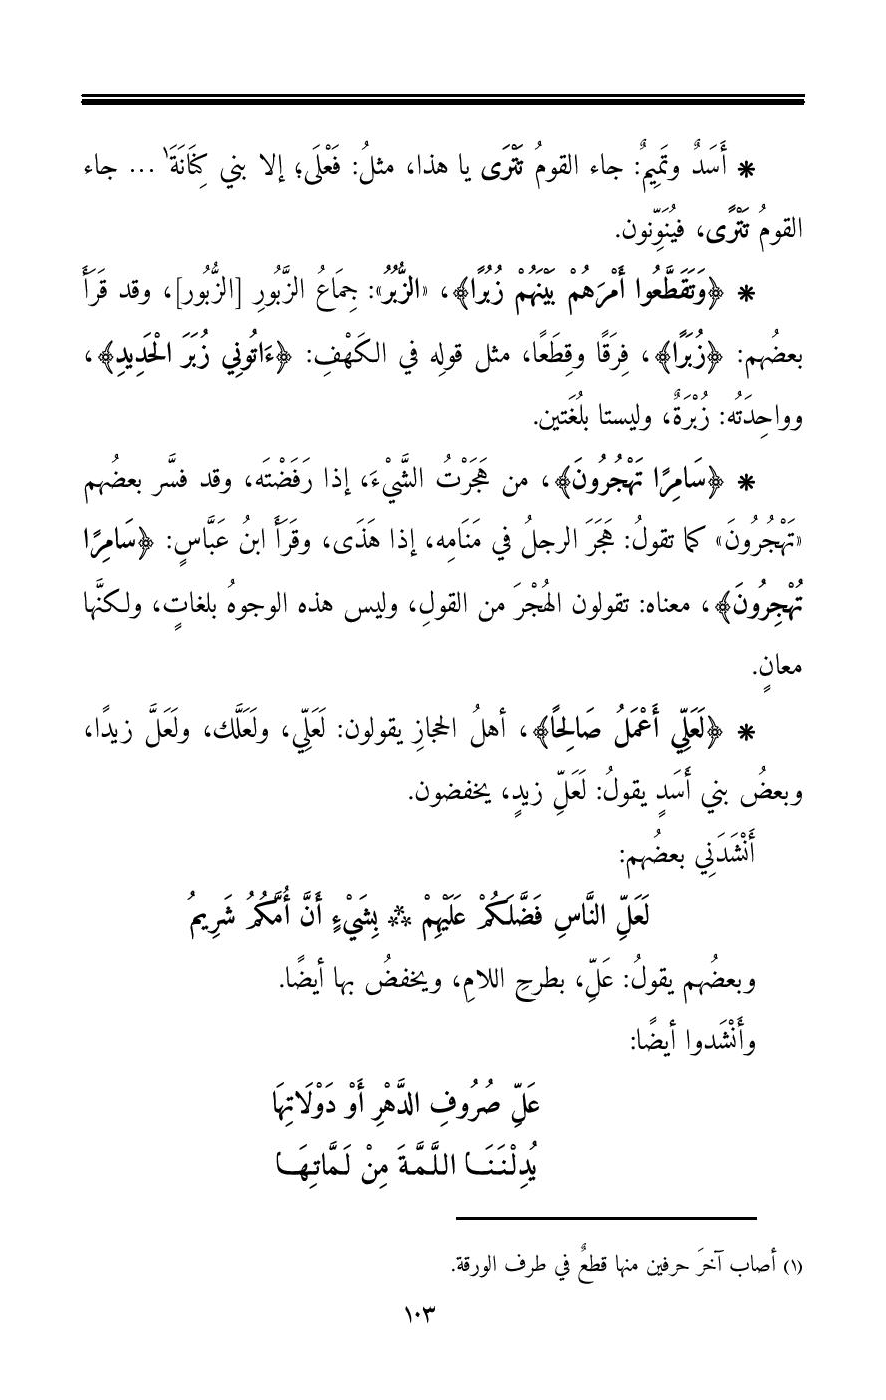 * أَسَدٌ وتَمِيمٌ: جاء القومُ تَتْرَى يا هذا، مثلُ: فَعْلَى؛ إلا بني كِنَانَةَ١ ... جاء
القومُ تَتْرًى، فيُنَوِّنون.
* ﴿وَتَقَطَّعُوا أَمْرَهُمْ بَيْنَهُمْ زُبُرًا﴾، «الزُّبُرُ»: جِمَاعُ الزَّبُورِ [الزُّبُور]، وقد قَرَأَ
بعضُهم: ﴿زُبَرًا﴾، فِرَقًا وقِطَعًا، مثل قولِه في الكَهْفِ: ﴿ءَاتُونِي زُبَرَ الْحَدِيدِ﴾،
وواحِدَتُه: زُبْرَةٌ، وليستا بلُغَتين.
* ﴿سَامِرًا تَهْجُرُونَ﴾، من هَجَرْتُ الشَّيْءَ، إذا رَفَضْتَه، وقد فسَّر بعضُهم
«تَهْجُرُونَ» كما تقولُ: هَجَرَ الرجلُ في مَنَامِه، إذا هَذَى، وقَرَأَ ابنُ عَبَّاسٍ: ﴿سَامِرًا
تُهْجِرُونَ﴾، معناه: تقولون الهُجْرَ من القولِ، وليس هذه الوجوهُ بلغاتٍ، ولكنَّها
معانٍ.
* ﴿لَعَلِّي أَعْمَلُ صَالِحًا﴾، أهلُ الحجازِ يقولون: لَعَلِّي، ولَعَلَّك، ولَعَلَّ زيدًا،
وبعضُ بني أَسَدٍ يقولُ: لَعَلِّ زيدٍ، يخفضون.
أَنْشَدَنِي بعضُهم:
لَعَلِّ النَّاسِ فَضَّلَكُمْ عَلَيْهِمْ ** بِشَيْءٍ أَنَّ أُمَّكُمُ شَرِيمُ
وبعضُهم يقولُ: عَلِّ، بطرحِ اللامِ، ويخفضُ بها أيضًا.
وأَنْشَدوا أيضًا:
عَلِّ صُرُوفِ الدَّهْرِ أَوْ دَوْلَاتِهَا
يُدِلْنَنَا اللَّمَّةَ مِنْ لَمَّاتِهَا
(١) أصاب آخرَ حرفين منها قطعٌ في طرف الورقة.
١٠٣